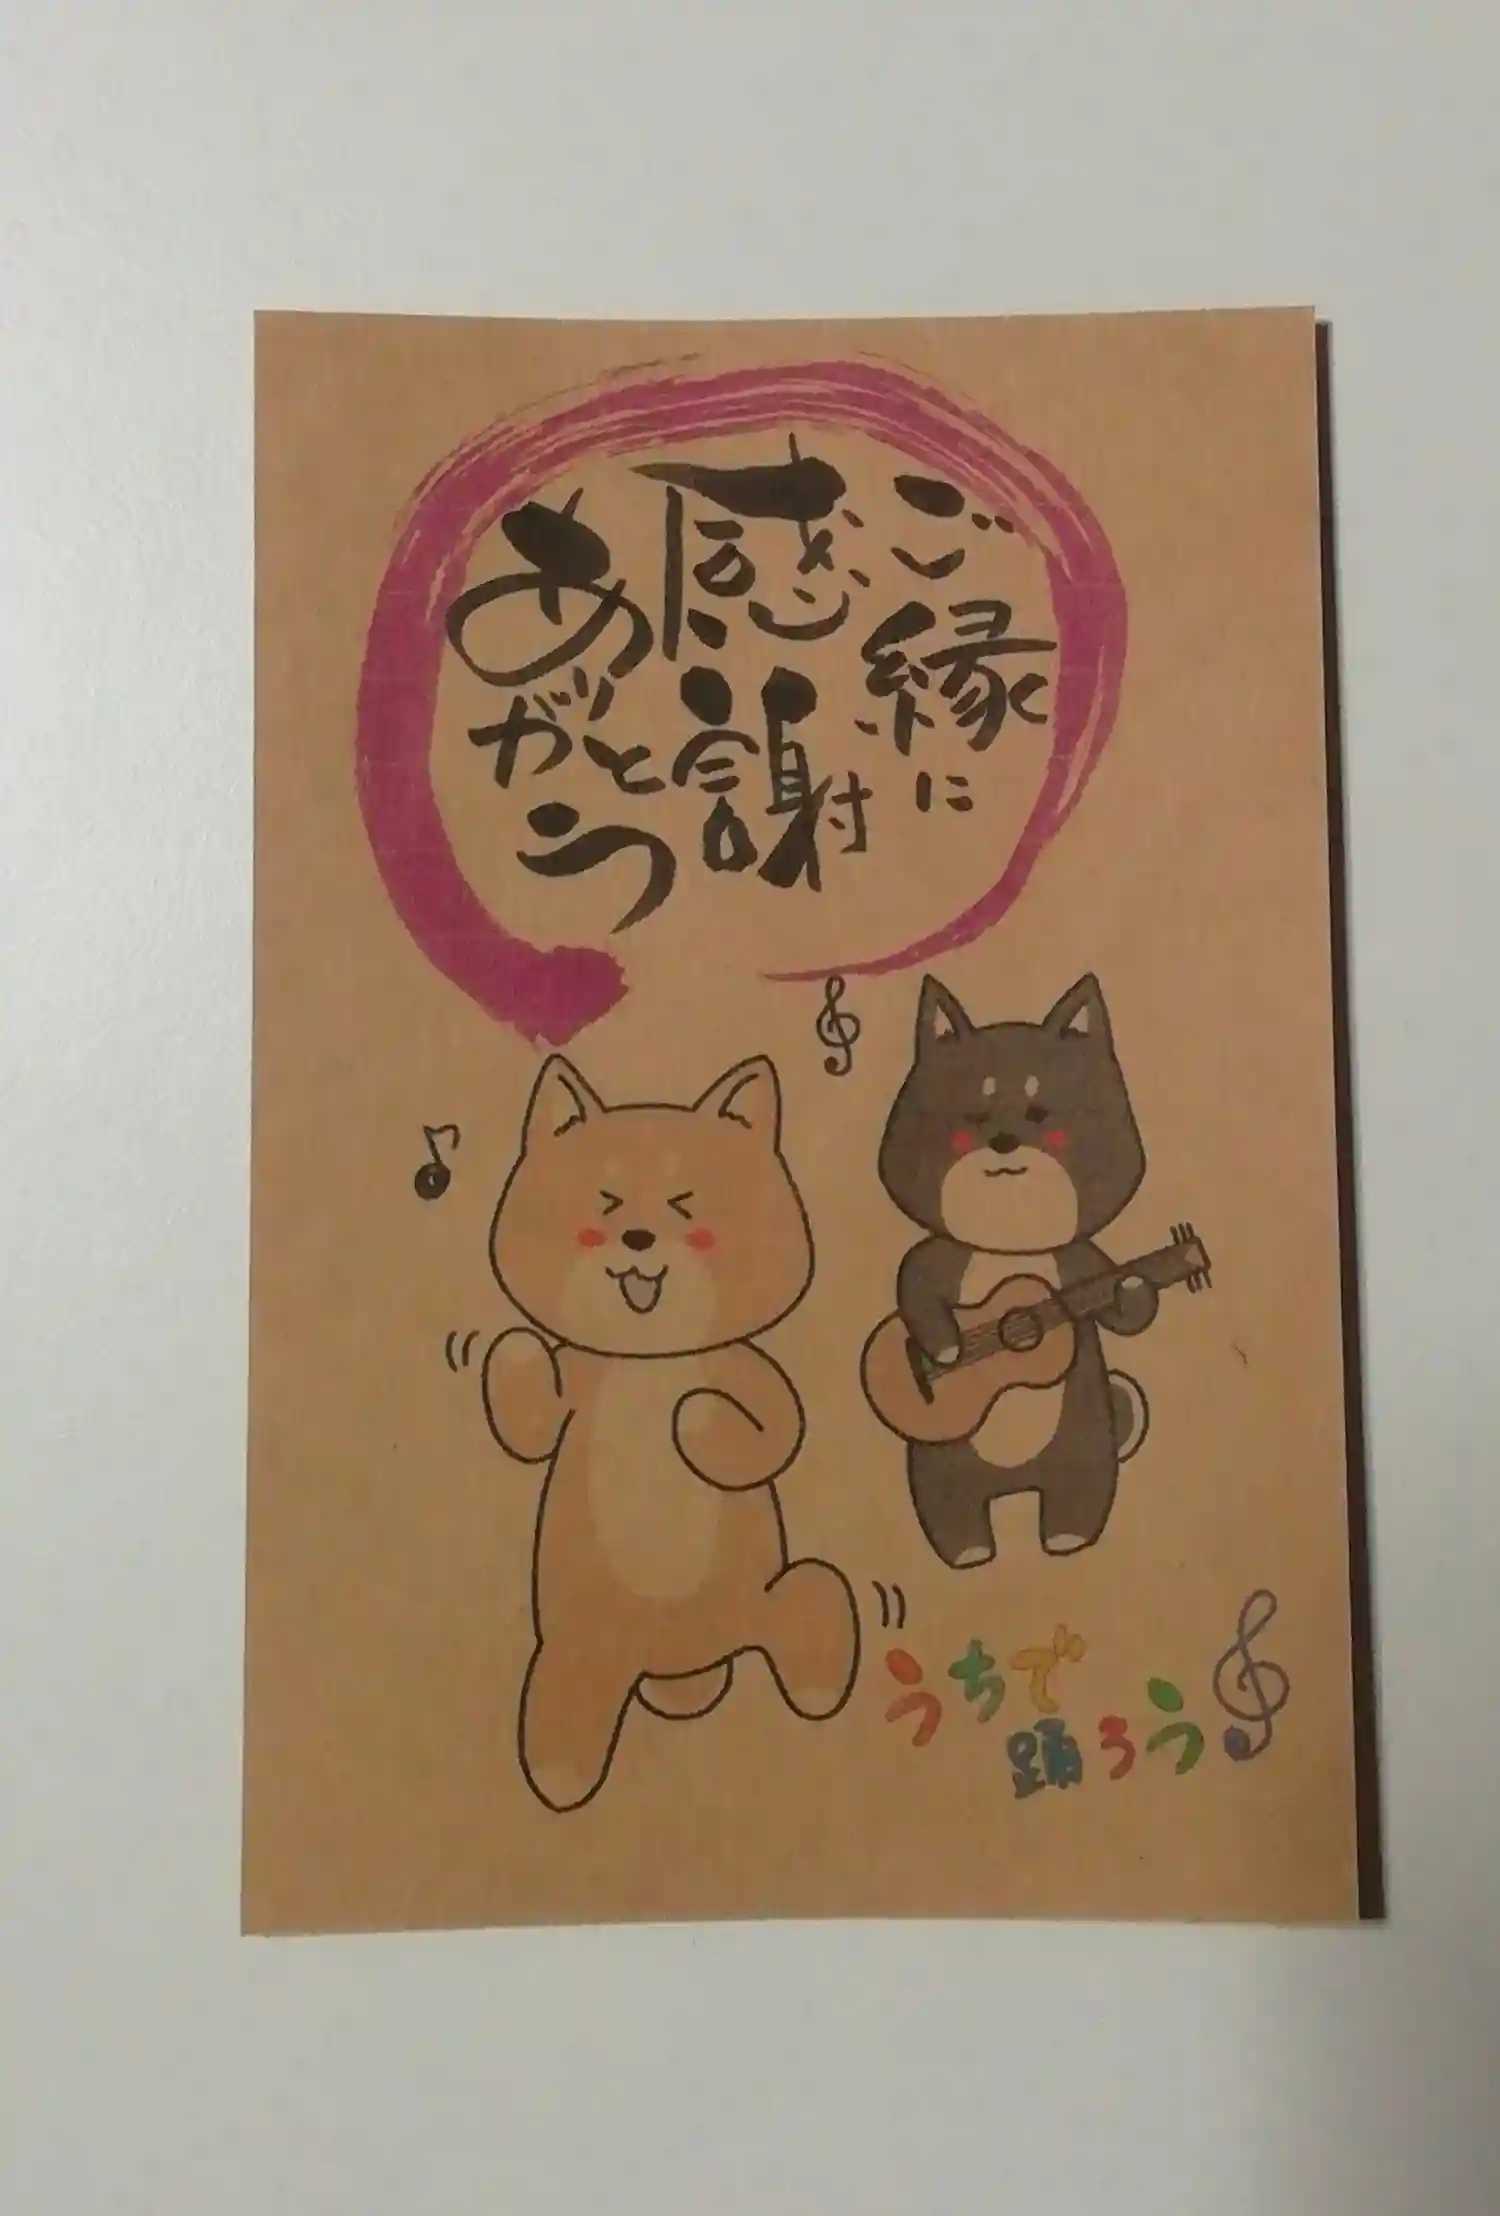 ご縁に
感謝
ありがとう
うちで
踊ろう